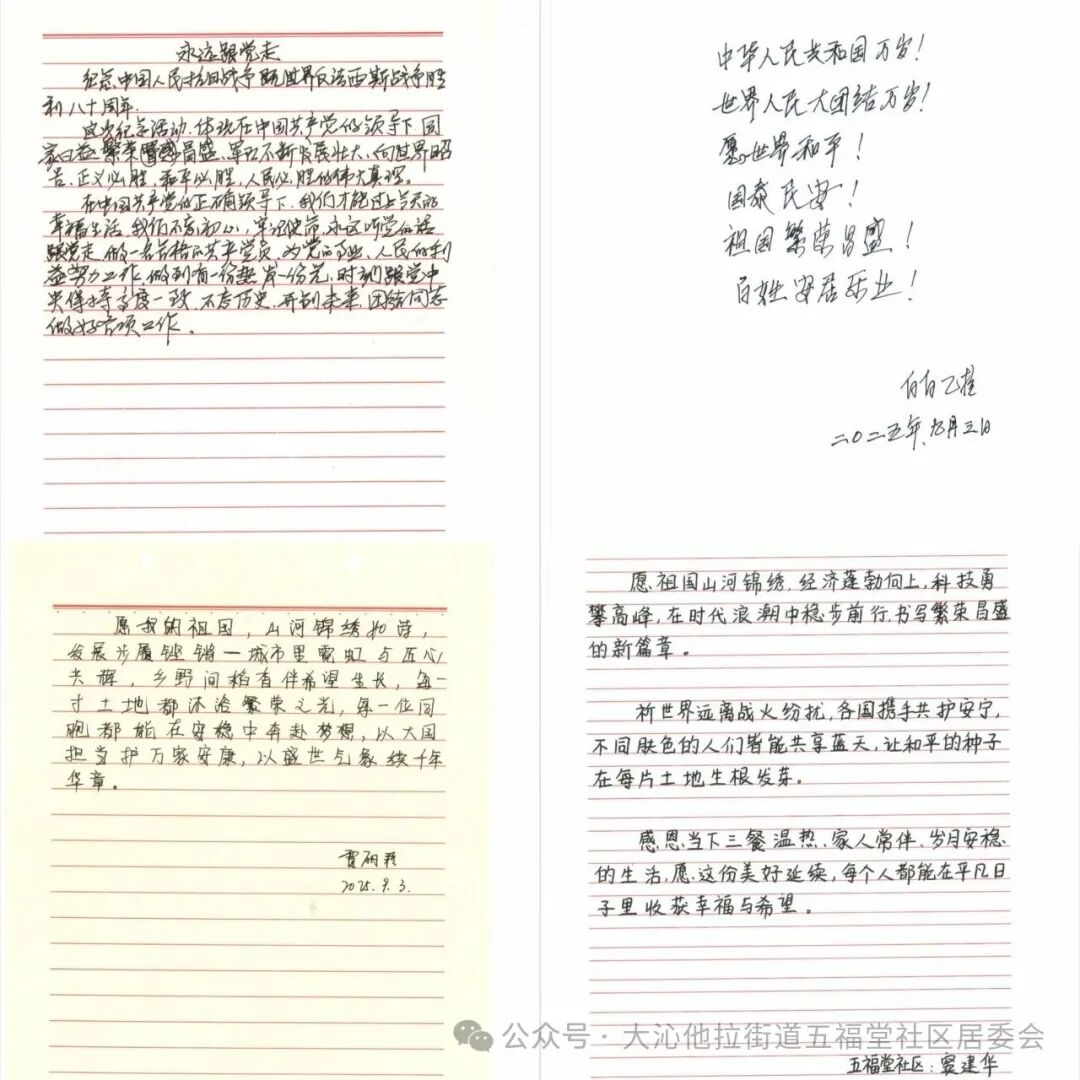 永远跟党走
纪念中国人民抗日战争暨世界反法西斯战争胜
利八十周年.
这次纪念活动.体现在中国共产党的领导下.国
家日益繁荣昌盛.军队不断发展壮大.向世界昭
告.正义必胜.和平必胜.人民必胜的伟大真理。
在中国共产党的正确领导下.我们才能过上今天的
幸福生活.我们不忘初心.牢记使命.永远听党的话
跟党走.做一名合格的共产党员.为党的事业.人民的利
益努力工作.做到有一份热发一份光.时刻跟党中
央保持高度一致.不忘历史.开创未来.团结同志
做好各项工作.
中华人民共和国万岁!
世界人民大团结万岁!
愿世界和平!
国泰民安!
祖国繁荣昌盛!
百姓安居乐业!
二〇二五年.九月三日
愿我的祖国,山河锦绣如诗,
发展步履铿锵—城市里霓虹与匠心
共辉,乡野间稻香伴希望生长,每一
寸土地都沐浴繁荣之光,每一位同
胞都能在安稳中奔赴梦想,以大国
担当护万家安康,以盛世气象续千年
华章。
2025.9.3.
愿祖国山河锦绣.经济蓬勃向上,科技勇
攀高峰,在时代浪潮中稳步前行.书写繁荣昌盛
的新篇章。
祈世界远离战火纷扰,各国携手共护安宁,
不同肤色的人们皆能共享蓝天,让和平的种子
在每片土地生根发芽。
感恩当下三餐温热.家人常伴.岁月安稳
的生活.愿这份美好延续,每个人都能在平凡日
子里收获幸福与希望。
五福堂社区:窦建华
公众号·大沁他拉街道五福堂社区居委会